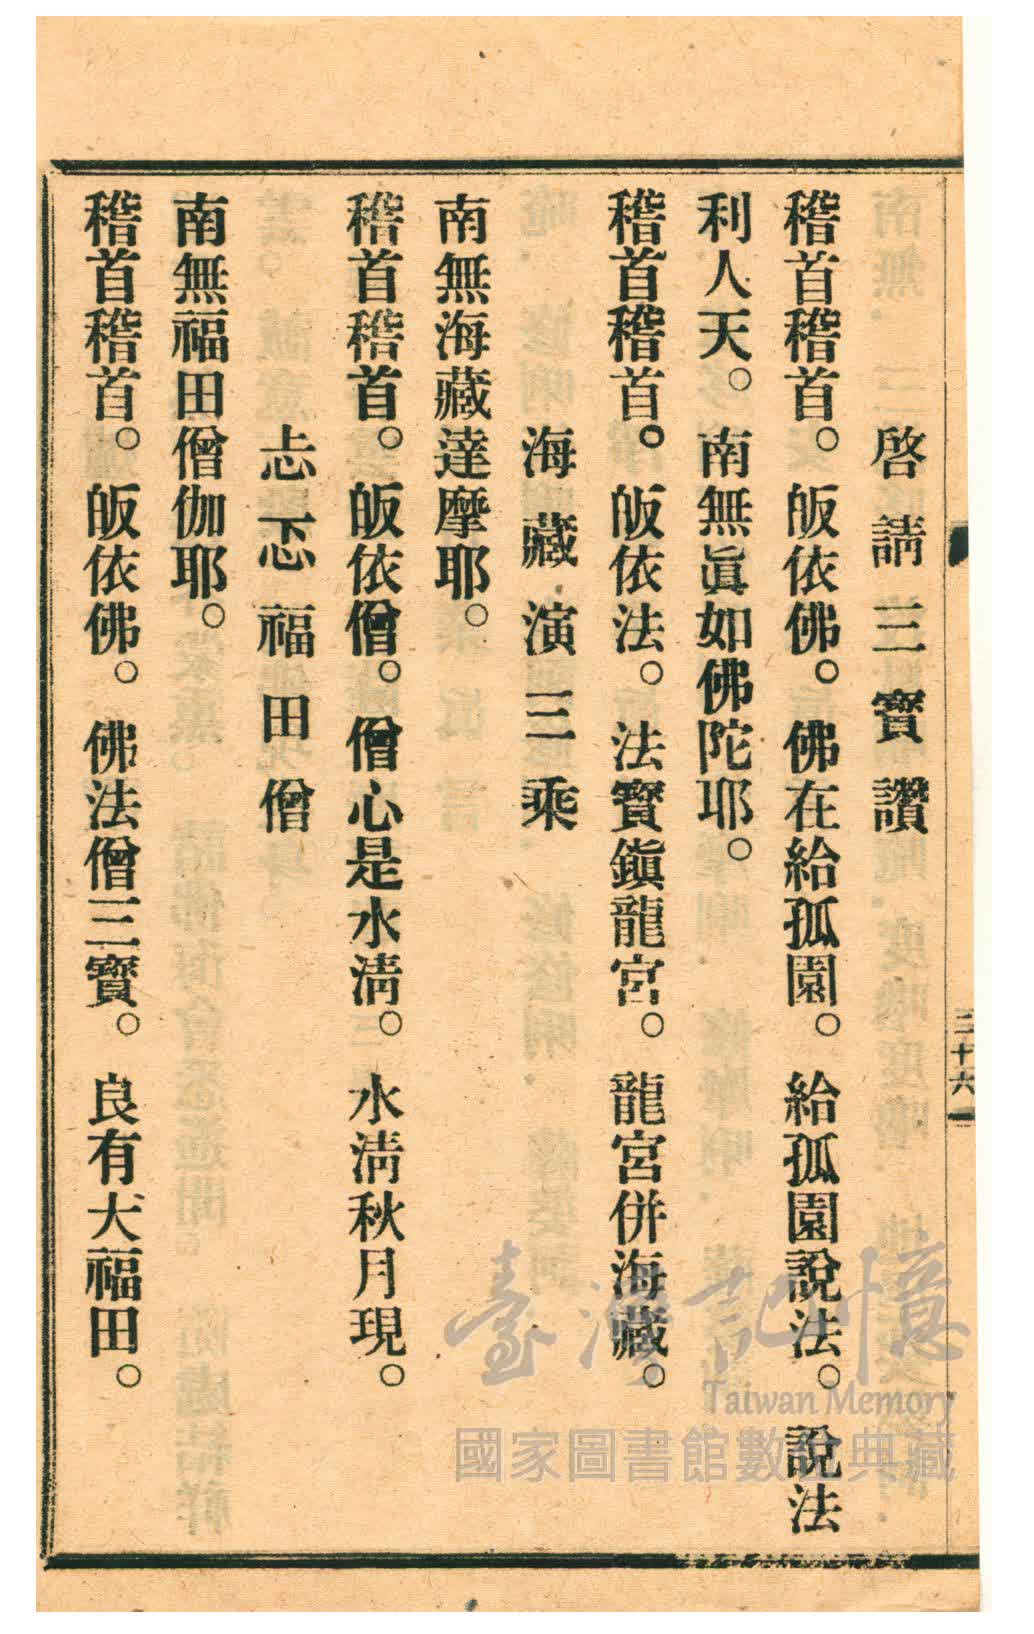 啓請三寳讚
稽首稽首。皈依佛。佛在給孤園。給孤園說法。說法
利人天。南無眞如佛陀耶。
稽首稽首。皈依法。法寳鎭龍宮。龍宮併海藏。
海藏演三乘
南無海藏達摩耶。
稽首稽首。皈依僧。僧心是水淸。水淸秋月現。
忐忑福田僧
南無福田僧伽耶。
稽首稽首。皈依佛。佛法僧三寳。良有大福田。
三十六
臺灣記憶
Taiwan Memory
國家圖書館數位典藏